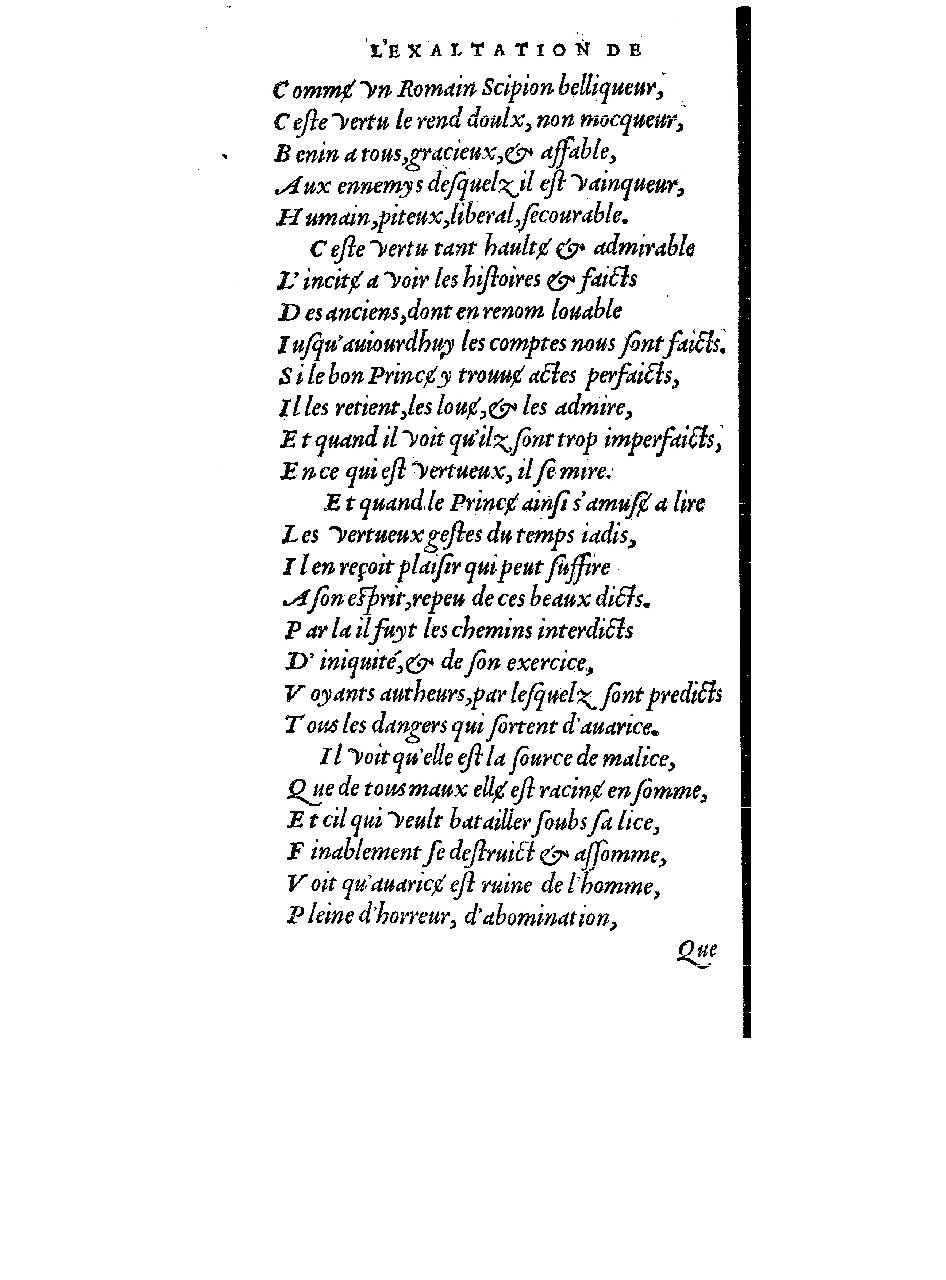 L'EXALTATION DE
Commɇ vn Romain Scipion belliqueur,
Ceſte vertu le rend doulx, non mocqueur,
Benin a tous, gracieux, & affable,
Aux ennemys deſquelz il eſt vainqueur,
Humain, piteux, liberal, ſecourable.
Ceſte vertu tant haultɇ & admirable
L'incitɇ a voir les hiſtoires & faicts
Des anciens, dont en renom louable
Iuſqu'auiourdhuy les comptes nous ſont faicts.
Si le bon Princɇ y trouuɇ actes perfaicts,
Il les retient, les louɇ, & les admire,
Et quand il voit qu'ilz ſont trop imperfaicts,
En ce qui eſt vertueux, il ſe mire.
Et quand le Princɇ ainſi s'amuſɇ a lire
Les vertueux geſtes du temps iadis,
Il en reçoit plaiſir qui peut ſuffire
A ſon eſprit, repeu de ces beaux dicts.
Par la il fuyt les chemins interdicts
D'iniquité, & de ſon exercice,
Voyants autheurs, par leſquelz ſont predicts
Tous les dangers qui ſortent d'auarice.
Il voit qu'elle eſt la ſource de malice,
Que de tous maux ellɇ eſt racinɇ en ſomme,
Et cil qui veult batailler ſoubs ſa lice,
Finablement ſe deſtruict & aſſomme,
Voit qu'auaricɇ eſt ruine de l'homme,
Pleine d'horreur, d'abomination,
Que